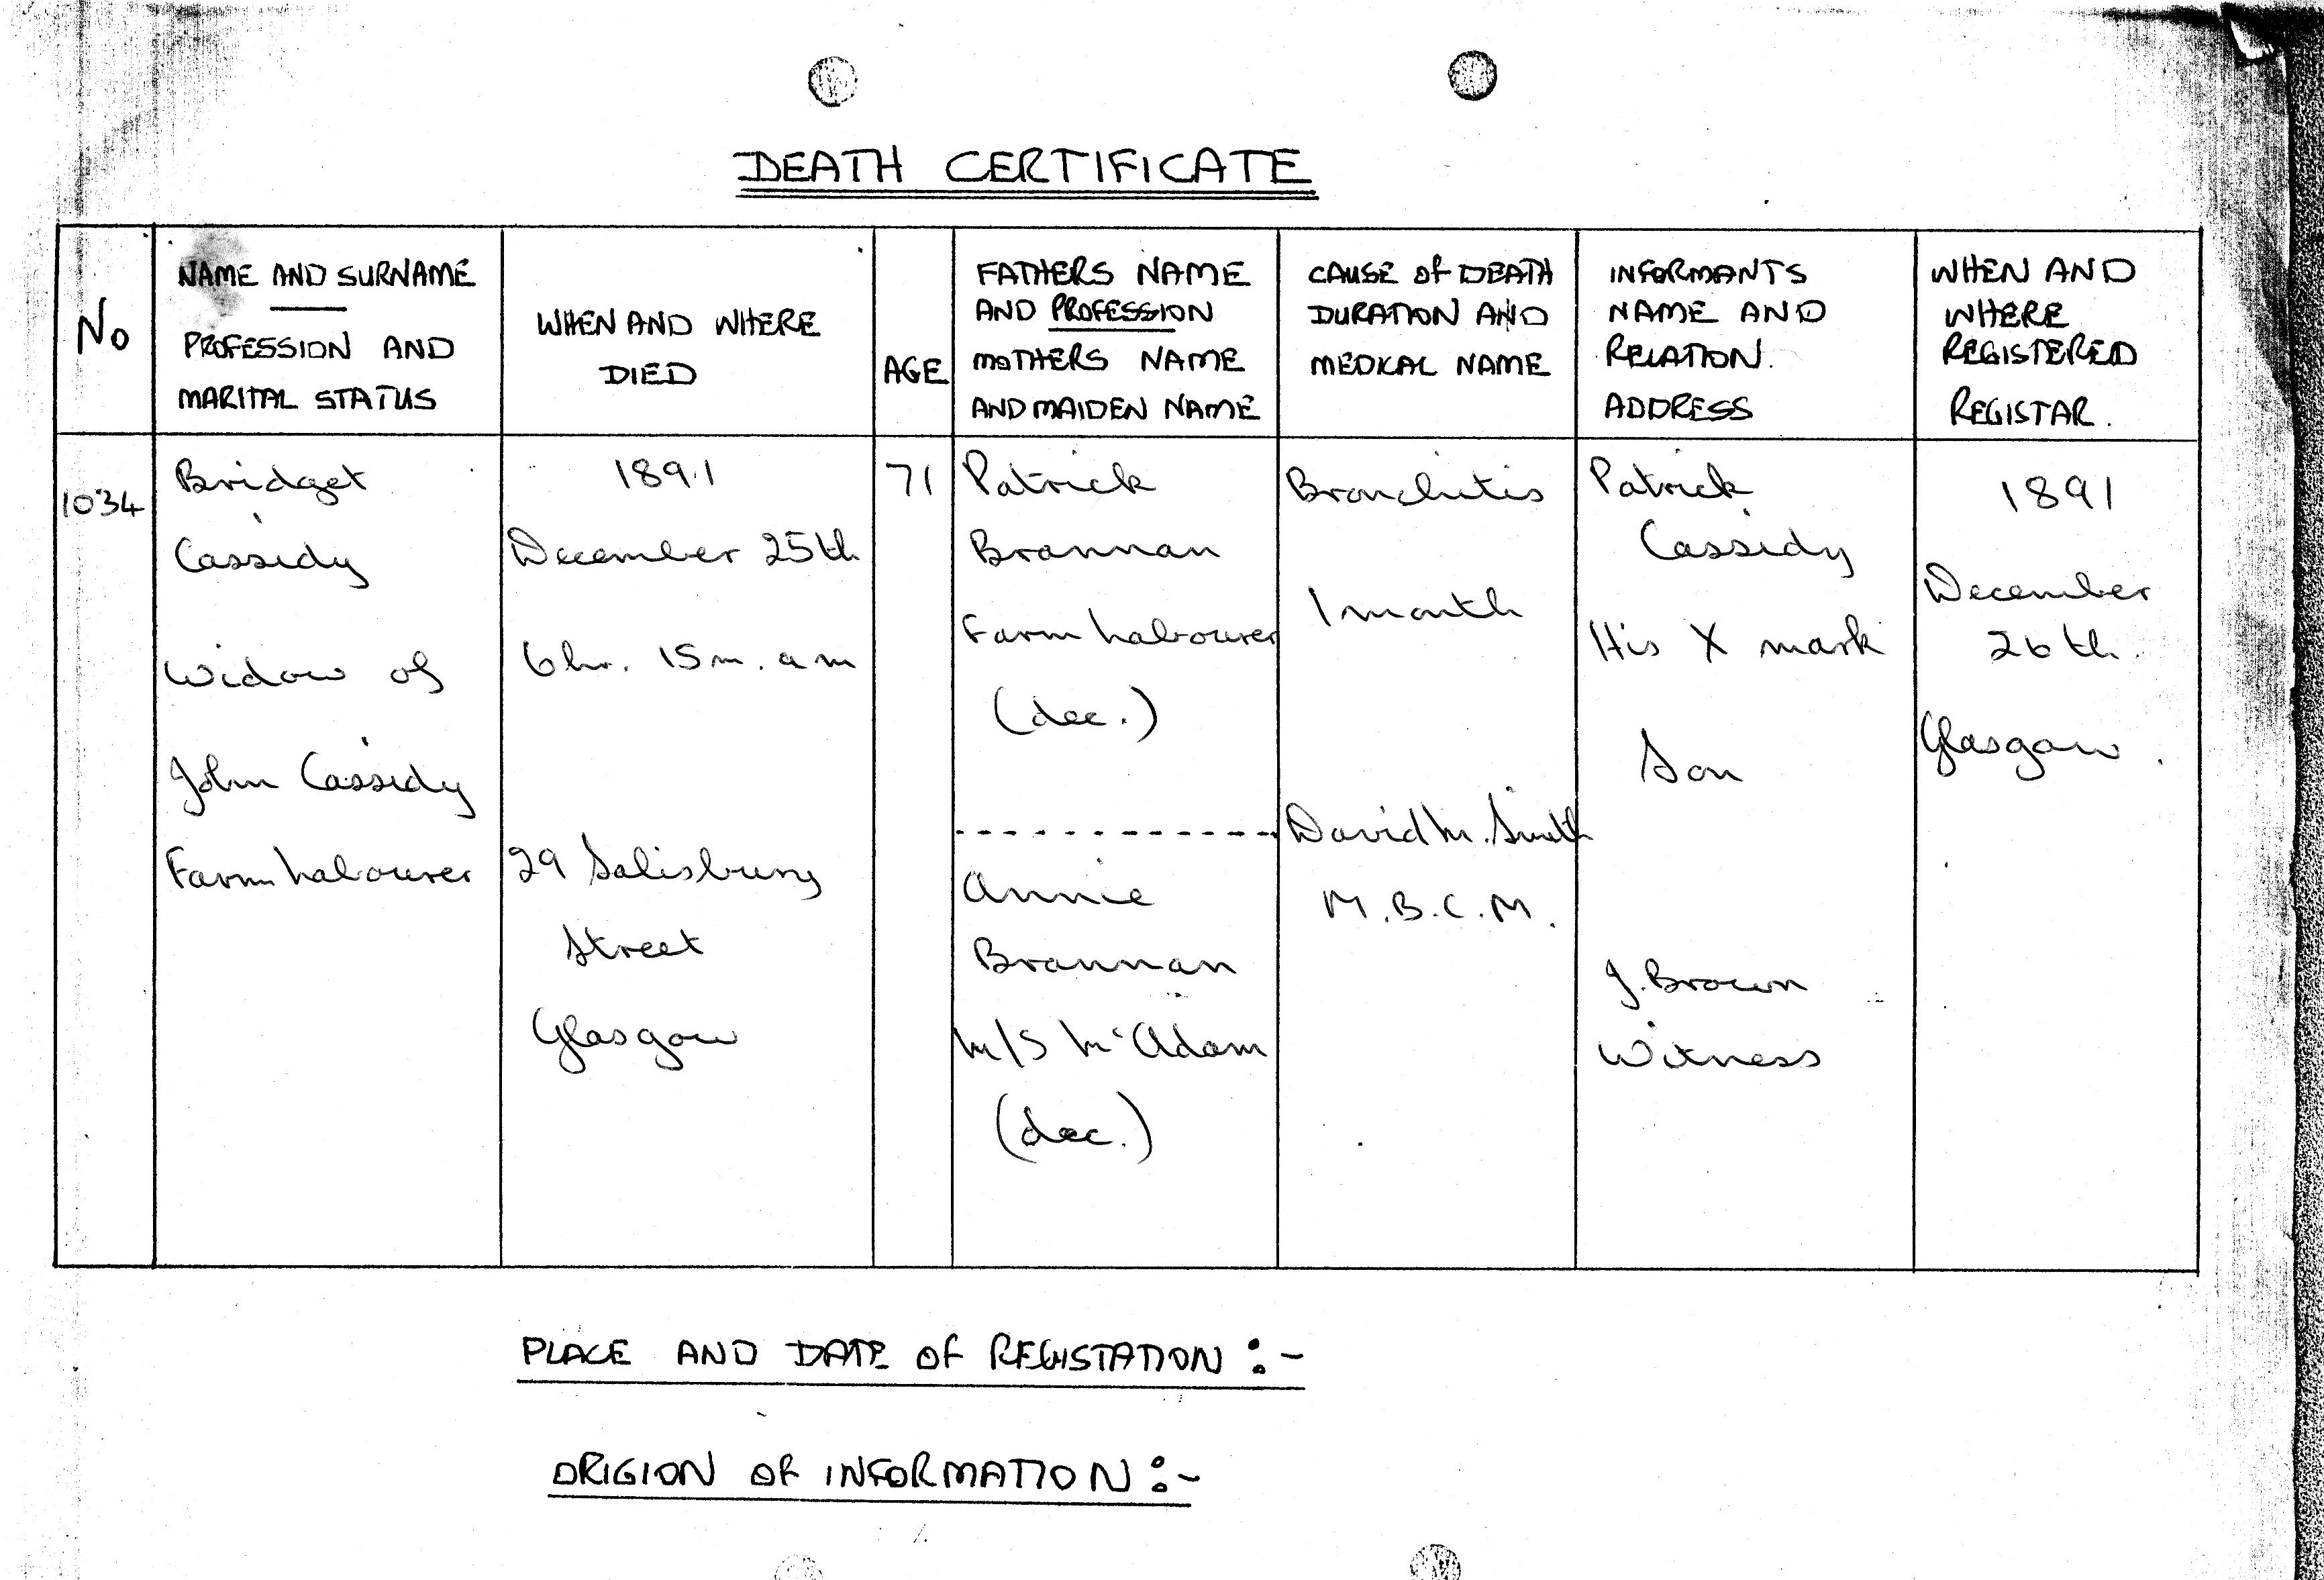 DEATH CERTIFICATE
No
NAME AND SURNAME
PROFESSION AND
MARITAL STATUS
WHEN AND WHERE
DIED
AGE
FATHERS NAME
AND PROFESSION
MOTHERS NAME
AND MAIDEN NAME
CAUSE OF DEATH
DURATION AND
MEDICAL NAME
INFORMANTS
NAME AND
RELATION.
ADDRESS
WHEN AND
WHERE
REGISTERED
REGISTAR.
1034
Bridget
Cassidy
Widow of
John Cassidy
Farm Labourer
1891
December 25th
6hr. 15m. am
29 Salisbury
Street
Glasgow
71
Patrick
Brannan
Farm Labourer
(dec.)
Annie
Brannan
m/s McAdam
(dec.)
Bronchitis
1 month
David M. Smith
M.B.C.M.
Patrick
Cassidy
His X mark
Son
J. Brown
Witness
1891
December
26th.
Glasgow.
PLACE AND DATE OF REGISTATION :-
ORIGION OF INFORMATION :-